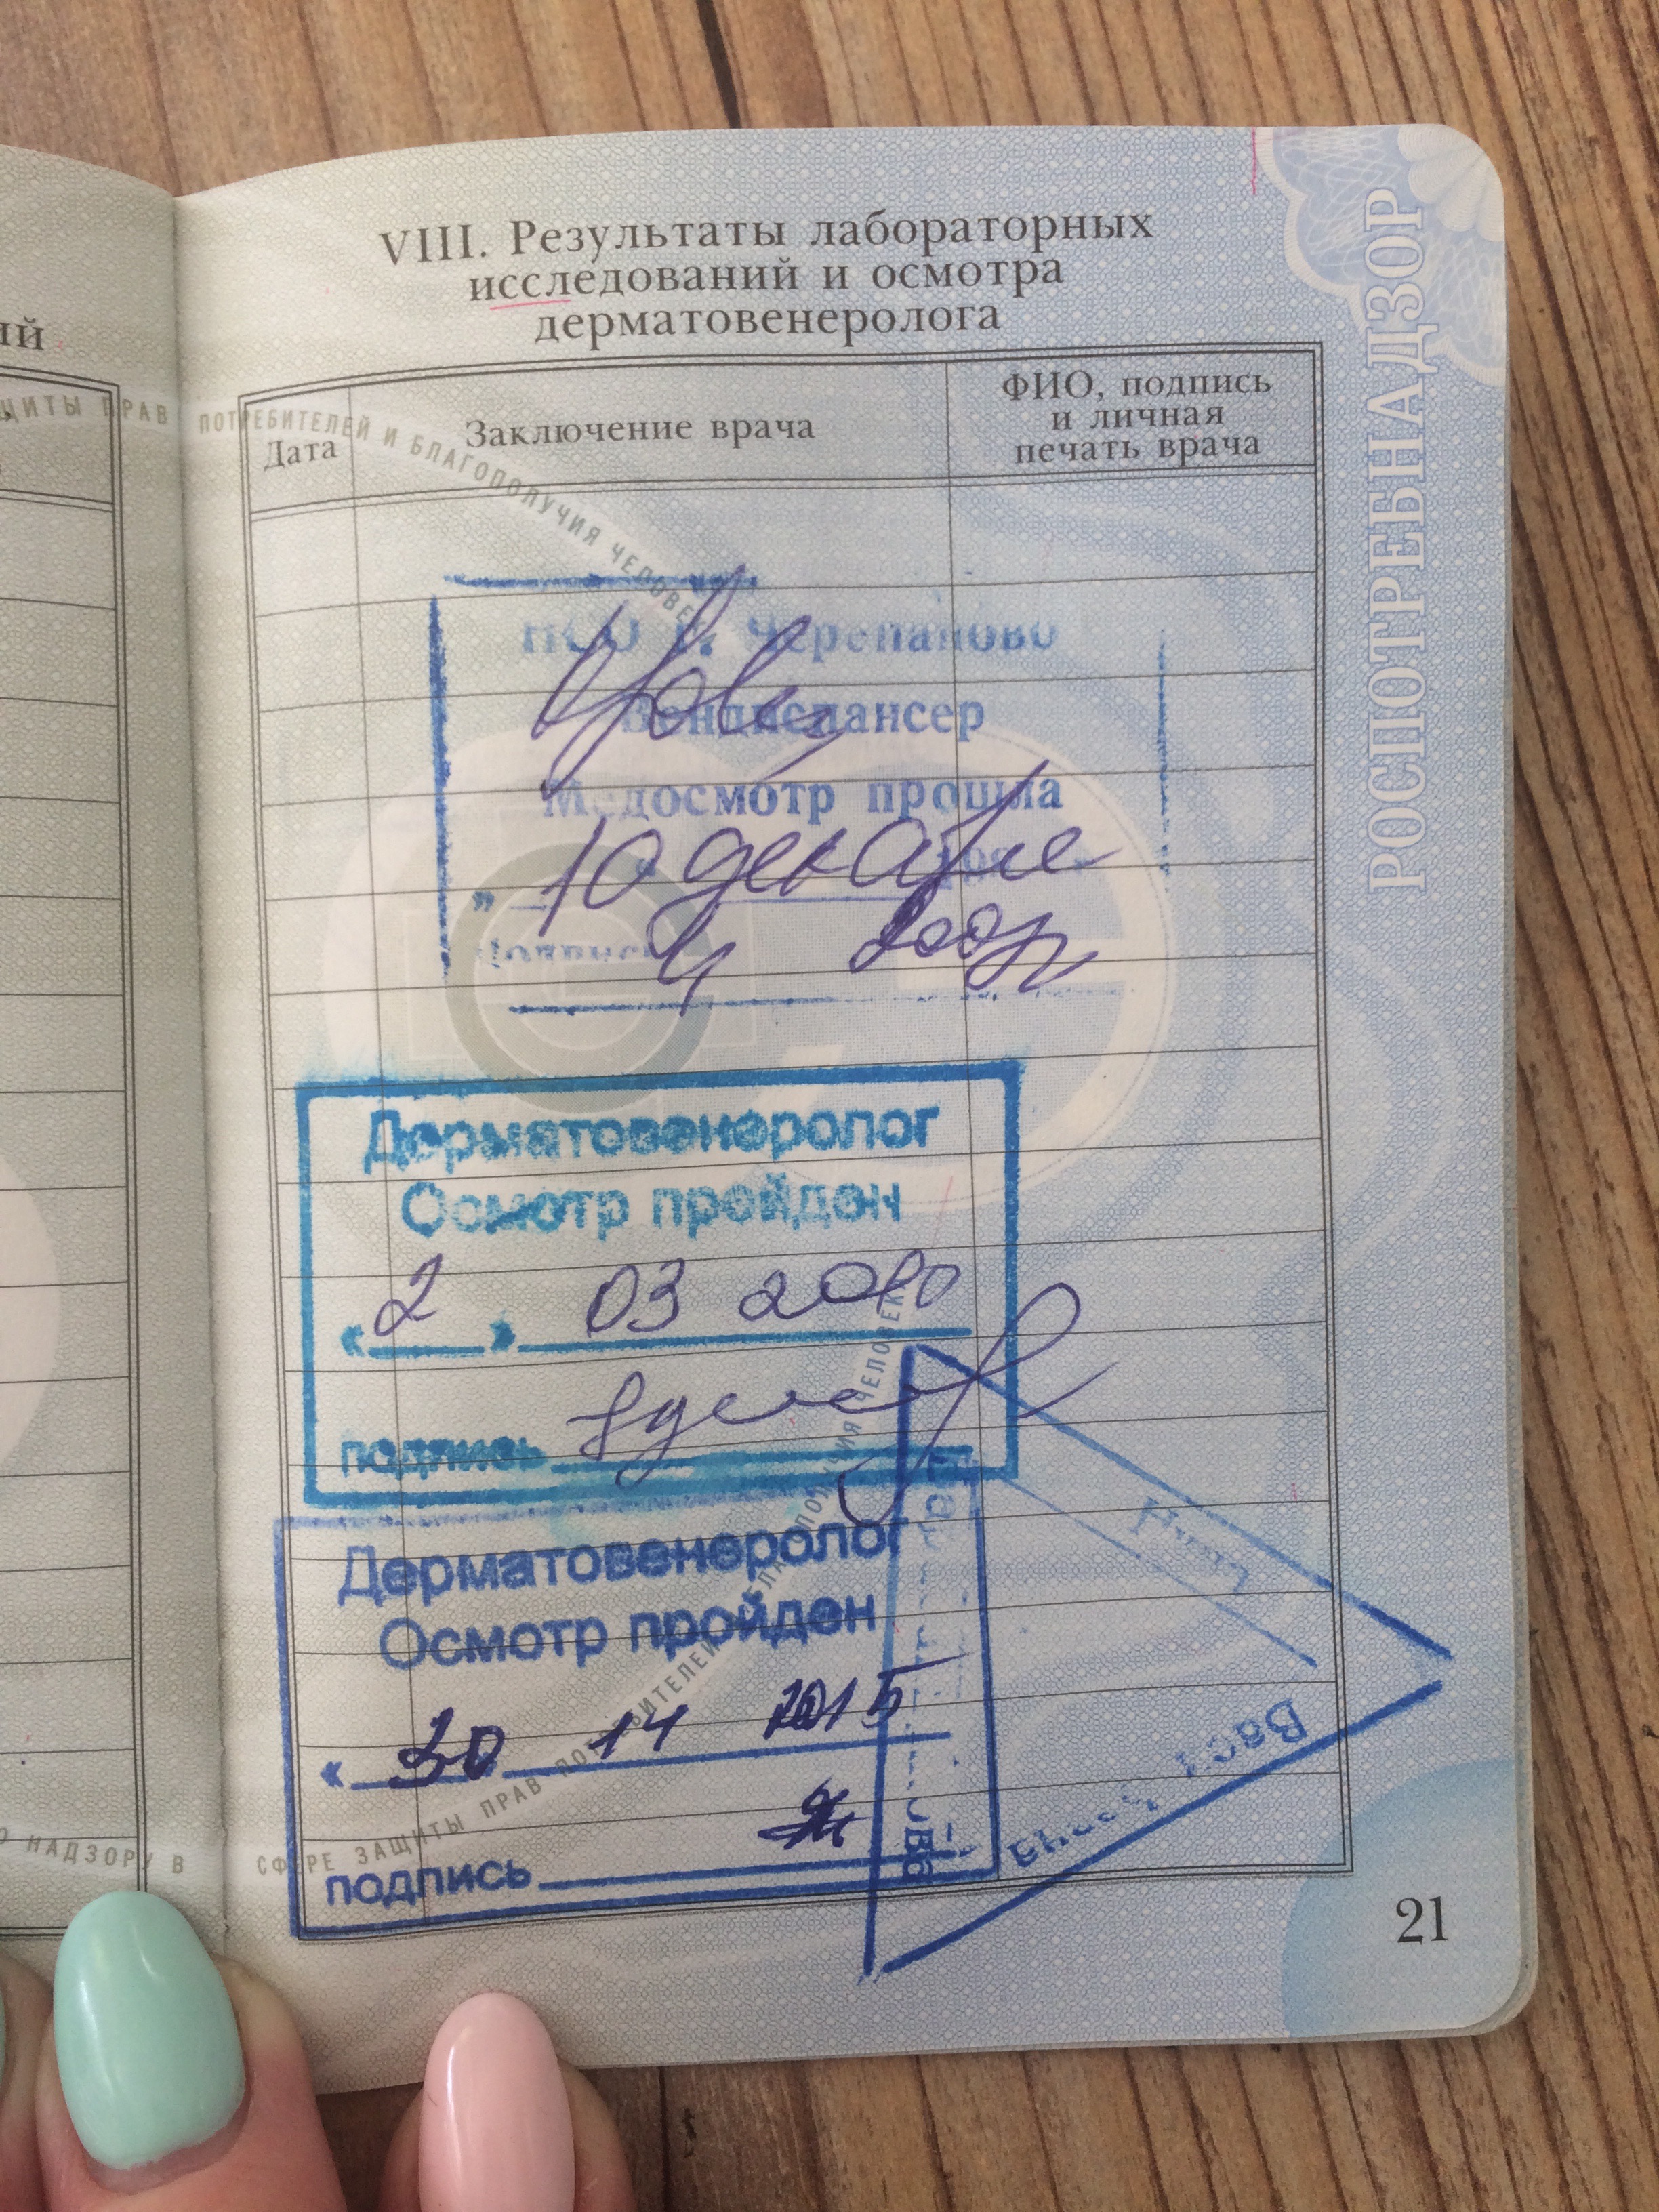 VIII. Результаты лабораторных
исследований и осмотра
дерматовенеролога
ий
Дата
Заключение врача
ФИО, подпись
и личная
печать врача
ЩИТЫ ПРАВ ПОТРЕБИТЕЛЕЙ И БЛАГОПОЛУЧИЯ ЧЕЛОВЕК
РОСПОТРЕБНАДЗОР
НСО г. Черепаново
Вендиспансер
Медосмотр прошла
10 декабря
Подпись
Дерматовенеролог
Осмотр пройден
« 2 » 03
подпись
Дерматовенеролог
Осмотр пройден
« 30 2015
подпись
О НАДЗОРУ В СФЕРЕ ЗАЩИТЫ ПРАВ ПОТРЕБИТЕЛЕЙ И БЛАГОПОЛУЧИЯ ЧЕЛОВЕК
21